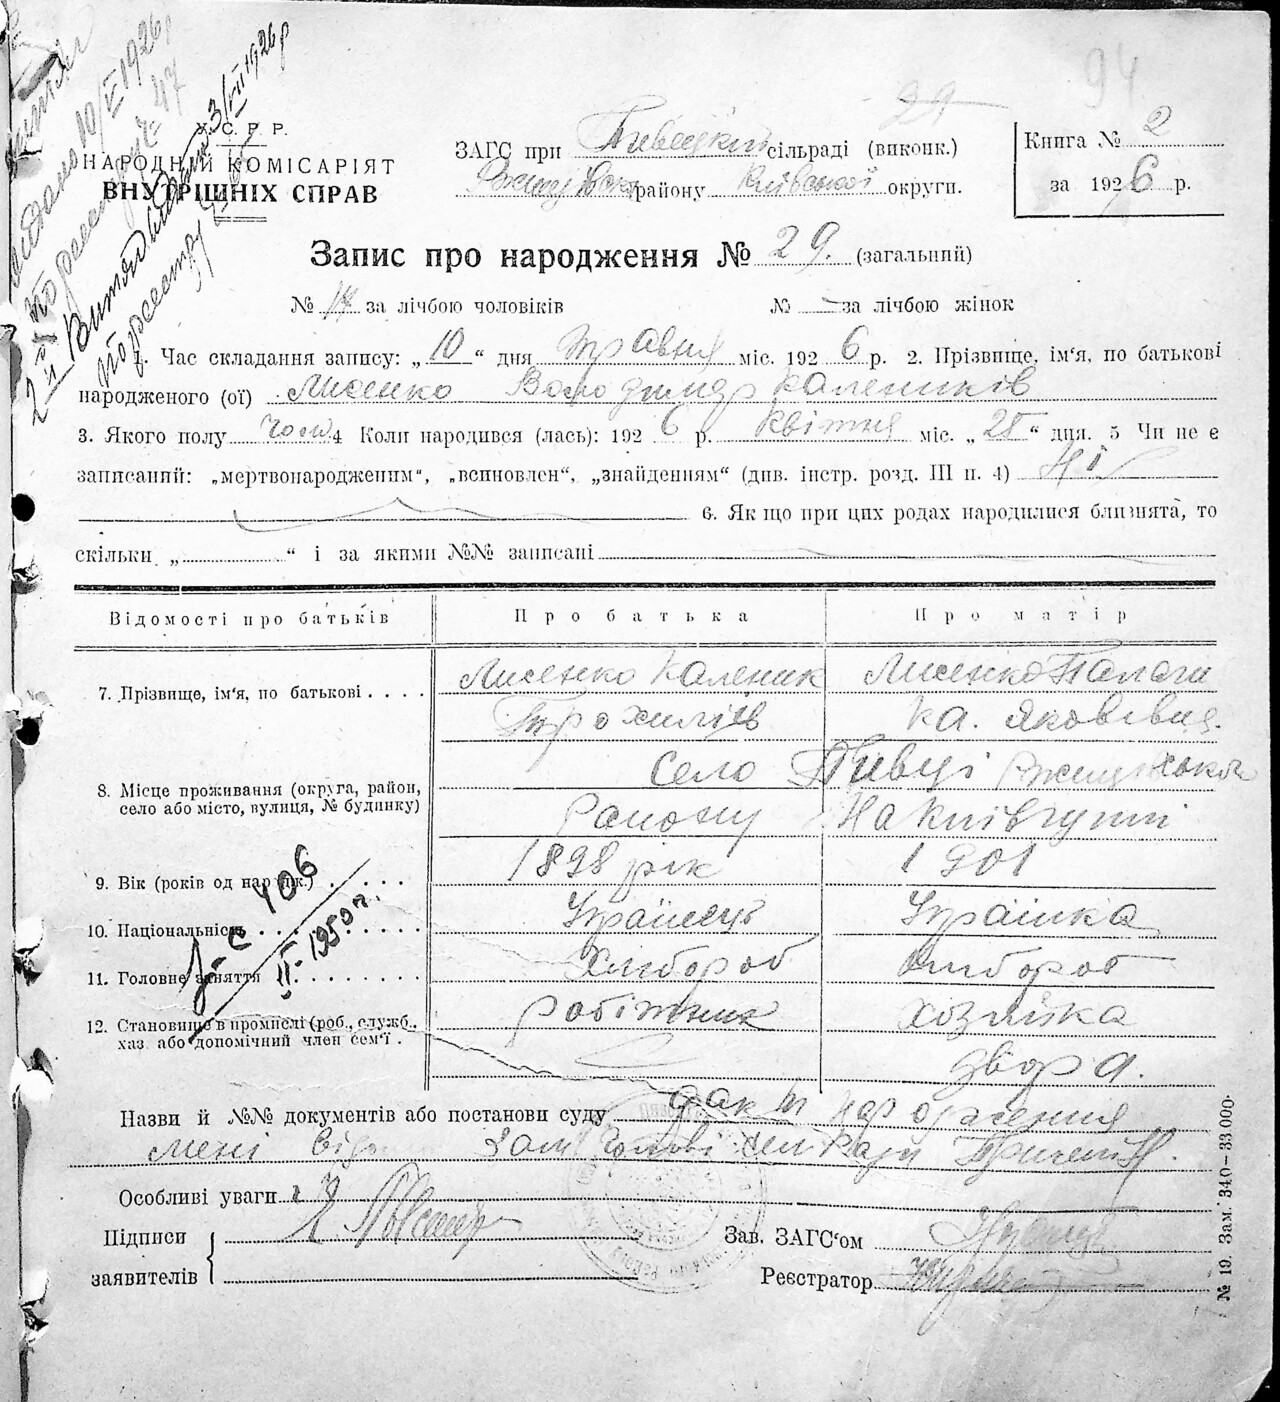 94
29
У.С.Р.Р.
НАРОДНІЙ КОМІСАРІЯТ
ВНУТРІШНІХ СПРАВ
ЗАГС при Пивецкій сільраді (виконк.)
району Київської округи.
Книга № 2
за 1926 р.
10/V 1926 р
№ 47
2й Витяг видано 3/VII 1926 р
по реєстру
Запис про народження № 29. (загальний)
№ 14 за лічбою чоловіків № – за лічбою жінок
1. Час складання запису: „10“ дня Травня міс. 1926 р. 2. Прізвище, ім'я, по батькові
народженого (ої) Лисенко Володимир Калеників
3. Якого полу чолов. 4 Коли народився (лась): 1926 р. Квітня міс. „28“ дня. 5 Чи не є
записаний: „мертвонародженим“, „всиновлен“, „знайденням“ (див. інстр. розд. III п. 4) Ні
6. Якщо при цих родах народилися близнята, то
скільки „ “ і за якими №№ записані
Відомості про батьків Про батька Про матір
7. Прізвище, ім'я, по батькові . . . . Лисенко Каленик Лисенко Палаги
Трохимів ка. Яковівна.
8. Місце проживання (округа, район, село або місто, вулиця, № будинку) село Пивці
Району На Київщині
9. Вік (років од нар дж.) . . . . . 1898 рік 1901
10. Національність . . . . . . . Українець Українка
11. Головне заняття . . . . . . Хлибороб Хлибороб
12. Становище в промислі (роб., служб., хаз. або допомічний член сем'ї . робітник хозяйка
двора.
406
II-1950 г.
Назви й №№ документів або постанови суду факт народження
мені Зам Голові сел Ради
Особливі уваги
Підписи
заявителів
Зав. ЗАГС'ом
Реєстратор
№ 19. Зам. 340–33.000.